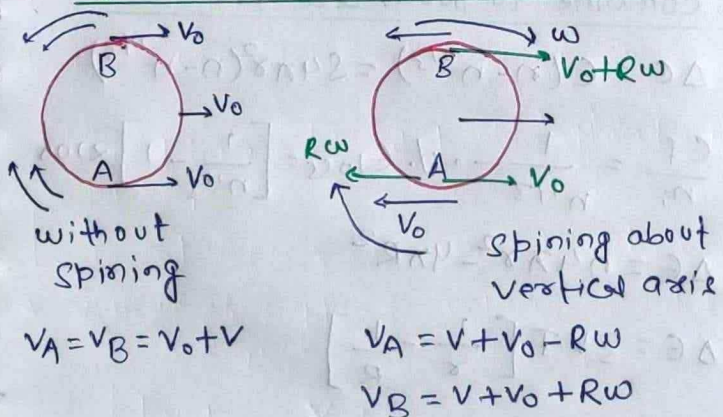 V₀
B
V₀
A
V₀
without
spining
V_A = V_B = V₀ + V
ω
B
V₀+Rω
Rω
A
V₀
V₀
spining about
vertical axis
V_A = V + V₀ - Rω
V_B = V + V₀ + Rω